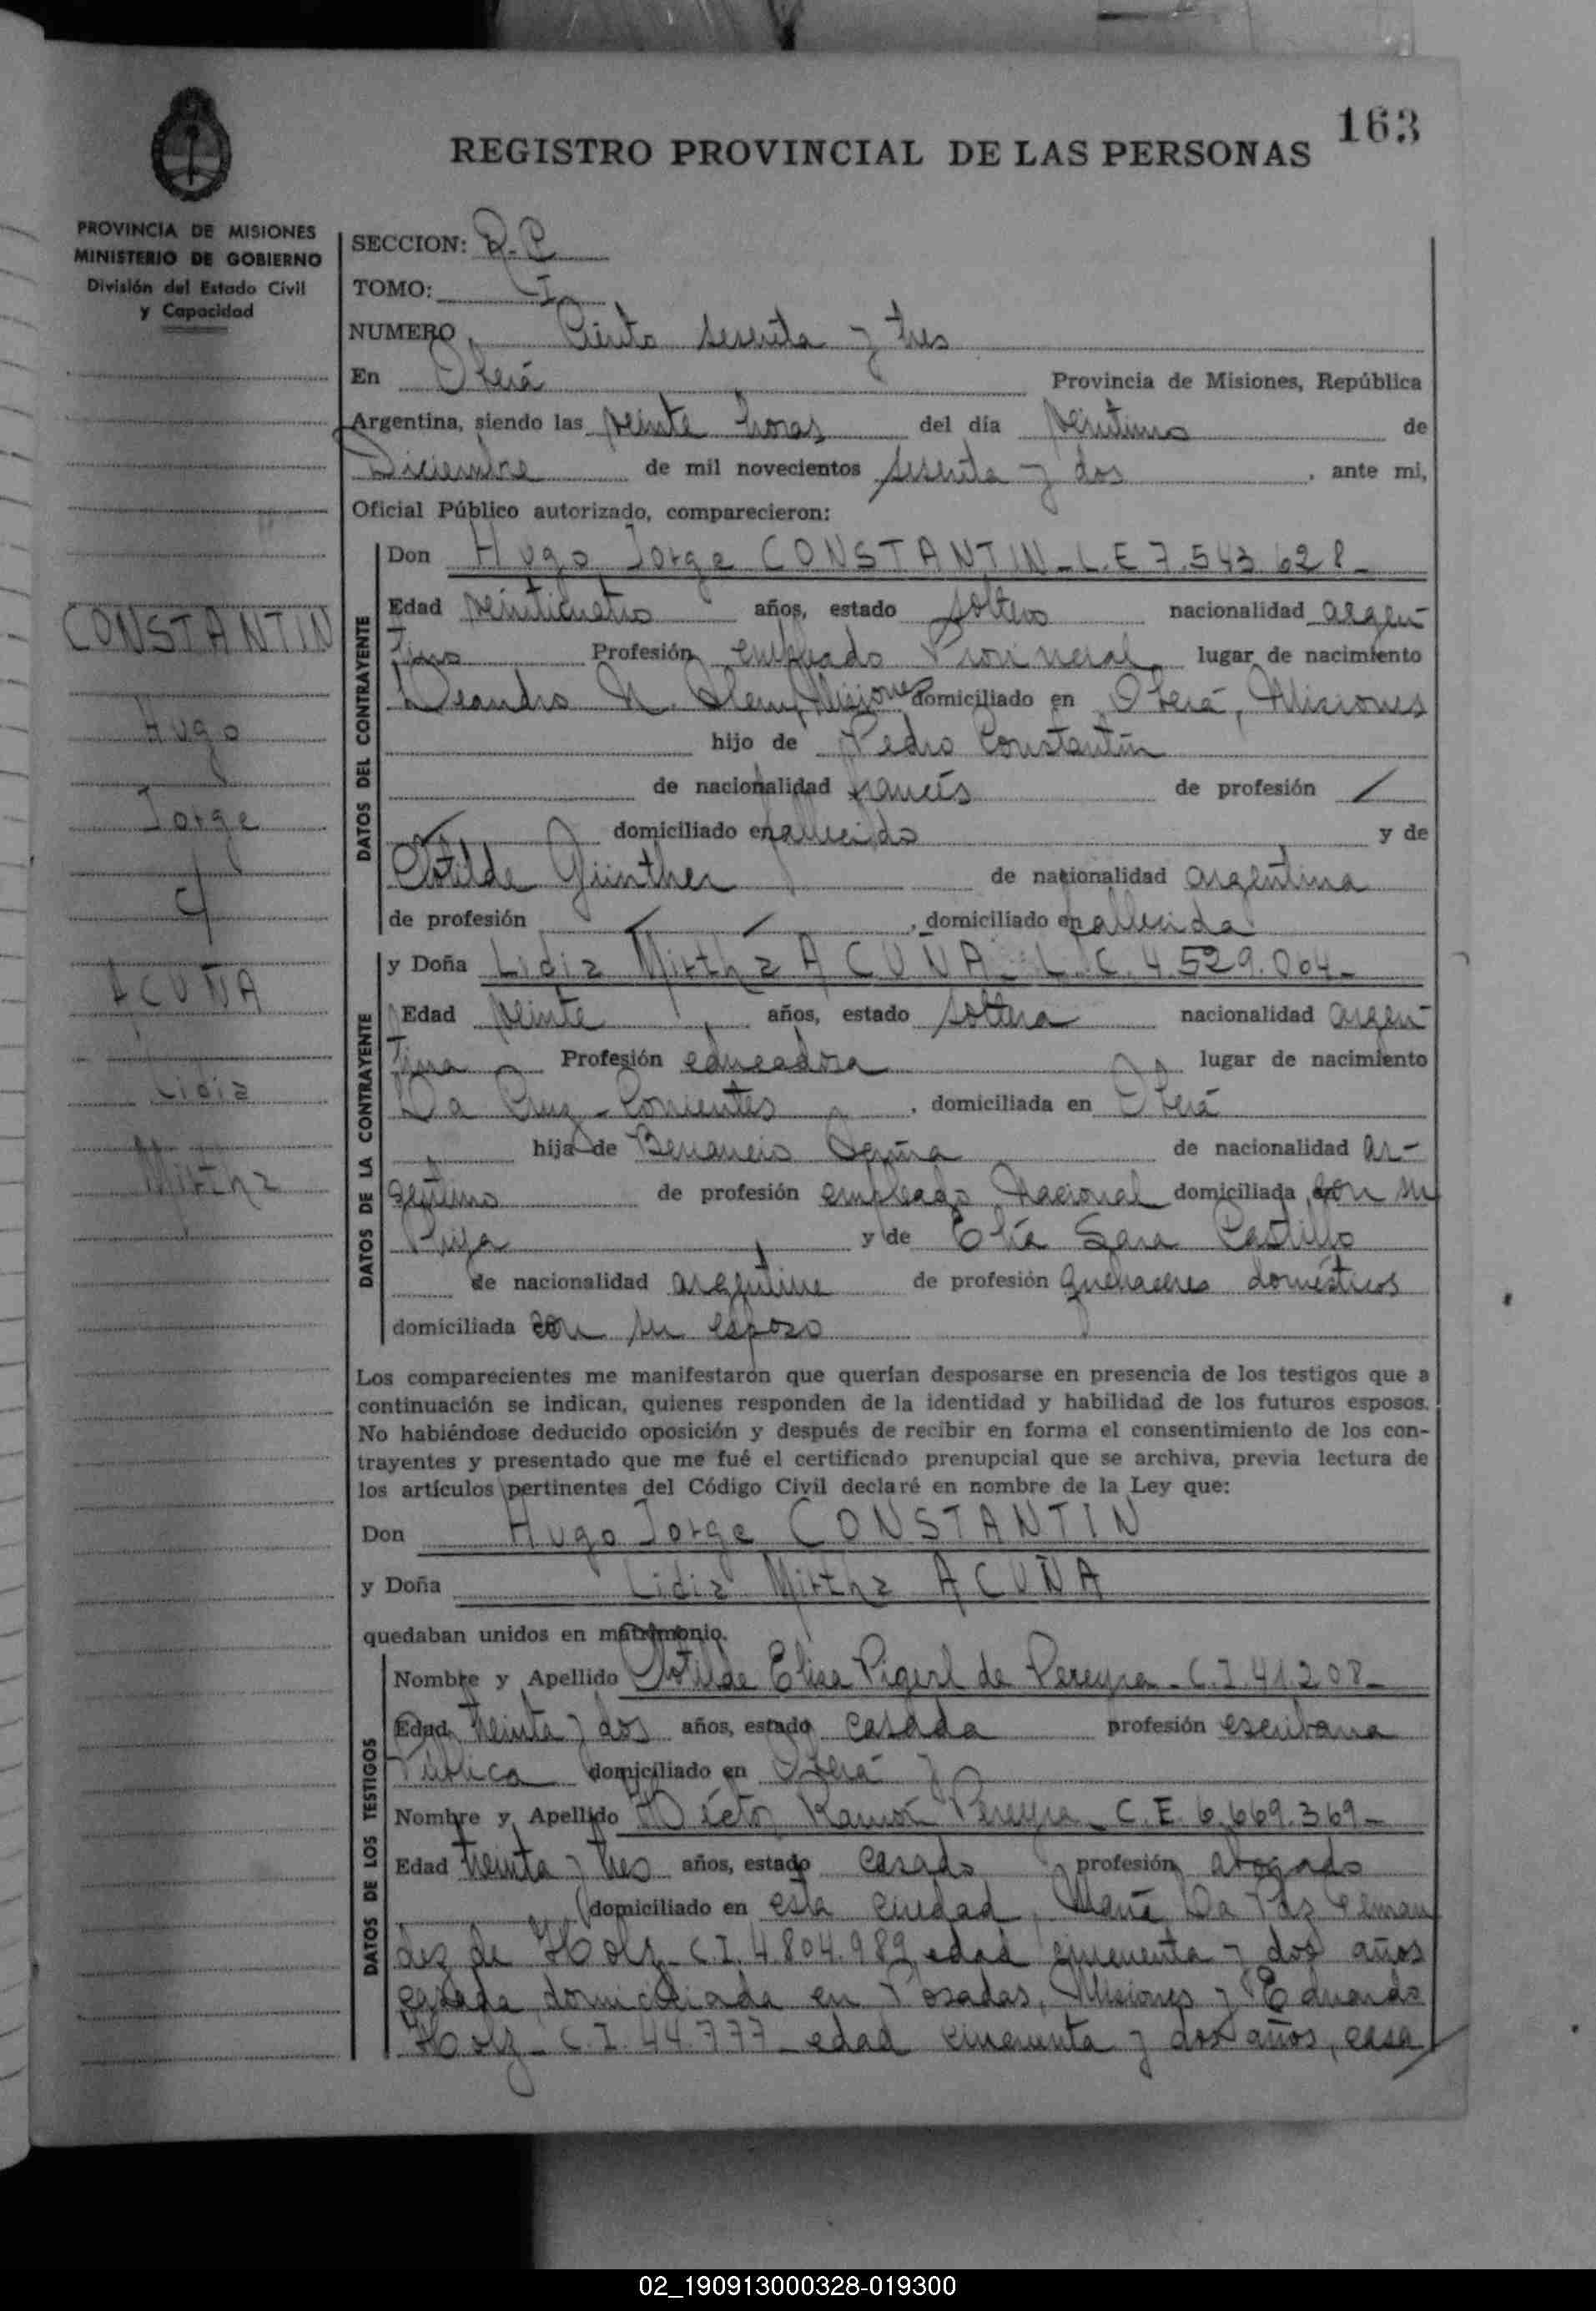 163
REGISTRO PROVINCIAL DE LAS PERSONAS
PROVINCIA DE MISIONES
MINISTERIO DE GOBIERNO
División del Estado Civil
y Capacidad
SECCION: R.C
TOMO: I
NUMERO Ciento sesenta y tres
En Oberá Provincia de Misiones, República
Argentina, siendo las veinte horas del día veintiuno de
Diciembre de mil novecientos sesenta y dos, ante mi,
Oficial Público autorizado, comparecieron:
CONSTANTIN
Hugo
Jorge
c/
ACUÑA
Lidia
Mirtha
DATOS DEL CONTRAYENTE
Don Hugo Jorge CONSTANTIN - L.E 7.543.628-
Edad veinticuatro años, estado soltero nacionalidad argen-
tino Profesión empleado Provincial lugar de nacimiento
Leandro N. Alem, Misiones domiciliado en Oberá, Misiones
hijo de Pedro Constantín
de nacionalidad francés de profesión /
domiciliado en fallecido y de
Clotilde Günther de nacionalidad argentina
de profesión , domiciliado en fallecida
DATOS DE LA CONTRAYENTE
y Doña Lidia Mirtha ACUÑA - L.C. 4.529.004-
Edad veinte años, estado soltera nacionalidad argen-
tina Profesión educadora lugar de nacimiento
La Cruz - Corrientes, domiciliada en Oberá
hija de Benancio Acuña de nacionalidad ar-
gentino de profesión empleado Nacional domiciliada con su
hija y de Elía Sara Castillo
de nacionalidad argentina de profesión quehaceres domésticos
domiciliada con su esposo
Los comparecientes me manifestaron que querían desposarse en presencia de los testigos que a
continuación se indican, quienes responden de la identidad y habilidad de los futuros esposos.
No habiéndose deducido oposición y después de recibir en forma el consentimiento de los con-
trayentes y presentado que me fué el certificado prenupcial que se archiva, previa lectura de
los artículos pertinentes del Código Civil declaré en nombre de la Ley que:
Don Hugo Jorge CONSTANTIN
y Doña Lidia Mirtha ACUÑA
quedaban unidos en matrimonio.
DATOS DE LOS TESTIGOS
Nombre y Apellido Clotilde Elisa de Pereyra - C.I. 41.208-
Edad treinta y dos años, estado casada profesión escribana
Pública domiciliado en Oberá y
Nombre y Apellido Héctor Ramón Pereyra - C.E. 6.669.369-
Edad treinta y tres años, estado casado profesión abogado
domiciliado en esta ciudad, María La Paz
dez de Holz - C.I. 4.804.989 edad cincuenta y dos años
casada domiciliada en Posadas, Misiones y Eduardo
Holz - C.I. 44.777 - edad cincuenta y dos años, casa
02_190913000328-019300